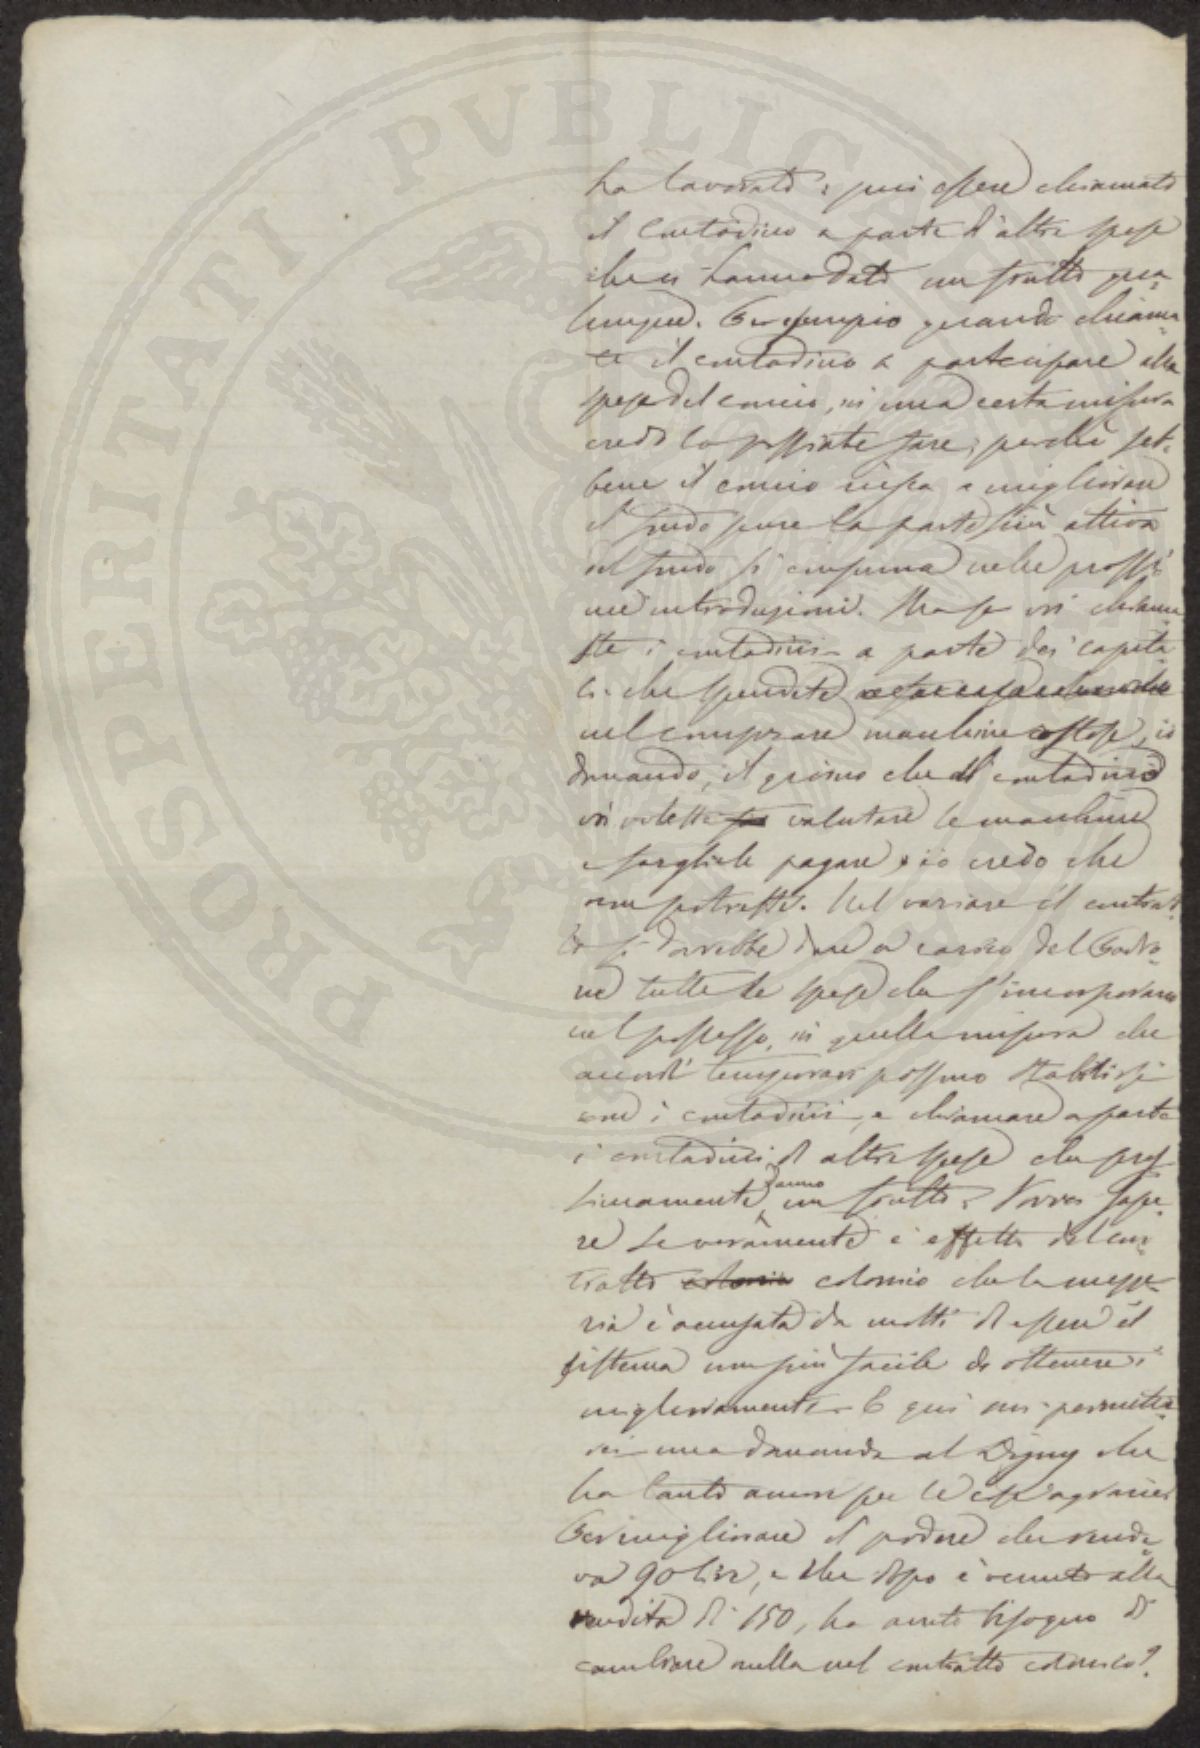 PROSPERITATI PUBLICAE
ha lavorato; può essere chiamato
il contadino a parte d'altre spese
che ci hanno dato un frutto qua=
lunque. Per esempio quando chiama=
te il contadino a partecipare alla
spesa del concio, in una certa misura
credo lo possiate fare; perché seb=
bene il concio riesca a migliorare
il fondo pure la parte più attiva
del fondo si consuma nelle prossi=
me introduzioni. Ma se voi chiama
ste i contadini a parte dei capita=
li che spendete
nel comprare macchine costose, io
domando, il giorno che il contadino
voi voleste valutare le macchine
e fargliele pagare, io credo che
non potreste. Nel variare il contrat=
to si dovrebbe dare a carico del Padro=
ne tutte le spese che s'incorporano
nel possesso, in quella misura che
accordi temporari possono stabilirsi
con i contadini, e chiamare a parte
i contadini di altre spese che pros=
simamente danno un frutto. Vorrei sape=
re se veramente è effetto del con=
tratto colonico che la mezze=
ria è accusata da molti di essere il
sistema non più facile di ottenere i
miglioramenti. E qui mi permette=
rei una domanda al Digny che
ha tanto amore per le cose agrarie:
Per migliorare il podere che rende=
va 90 lire, e che dopo è venuto alla
rendita di 150, ha avuto bisogno di
cambiare nulla nel contratto colonico?